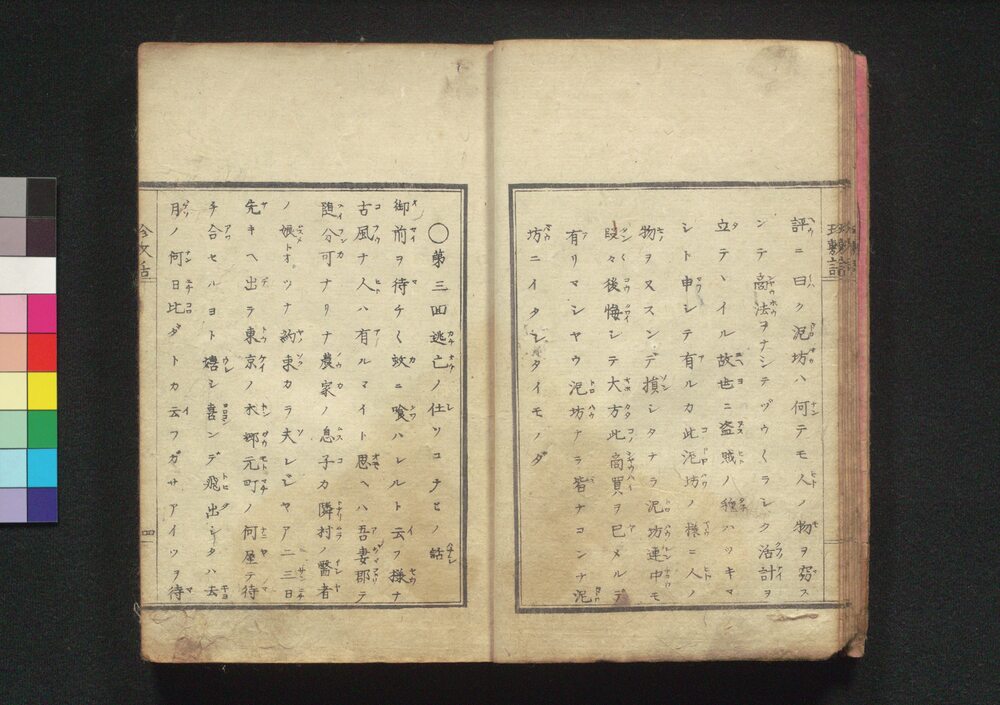 評ニ曰ク泥坊ハ何テモ人ノ物ヲ窃ス
ンテ商法ヲナシテヅウ〳〵ラシク活計ヲ
立テヽイル故世ニ盗賊ノ種ハツキマ
シト申シテ有ルカ此泥坊ノ様ニ人ノ
物ヲヌスンデ損シタナラ泥坊連中モ
段々後悔シテ大方此商買ヲ已メルデ
有リマシヤウ泥坊ナラ皆ナコンナ泥
坊ニイタシタイモノダ
〇第三回逃亡ノ仕ソコナヒノ話
御前ヲ待チ〳〵蚊ニ喰ハレルト云フ様ナ
古風ナ人ハ有ルマイト思ヘハ吾妻郡テ
随分可ナリナ農家ノ息子カ隣村ノ醫者
ノ娘トオツナ約束カラ夫レジヤア二三日
先キヘ出ラ東京ノ本郷元町ノ何屋テ待
チ合セルヨト嬉シ喜ンデ飛出シタハ去
月ノ何日比ダトカ云フガサアイツヲ待
四